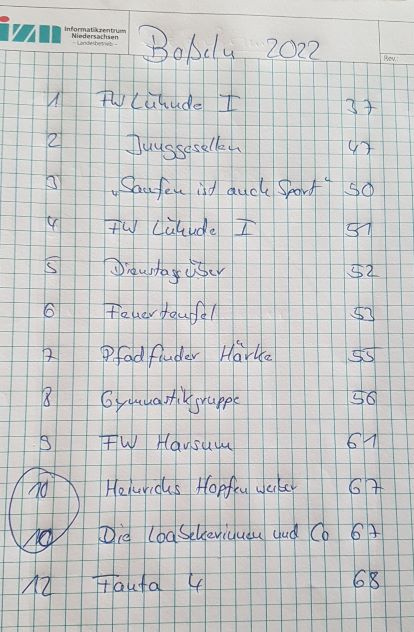 izn Informatikzentrum
Niedersachsen
- Landesbetrieb -
Rev.
Boßeln 2022
1 FW Lühnde I 37
2 Junggesellen 47
3 „Saufen ist auch Sport“ 50
4 FW Lühnde I 51
5 Dienstagsüber 52
6 Feuerteufel 53
7 Pfadfinder Härke 55
8 Gymnastikgruppe 56
9 FW Harsum 61
10 Heinrichs Hopfenweiber 67
10 Die und Co 67
12 Fanta 4 68